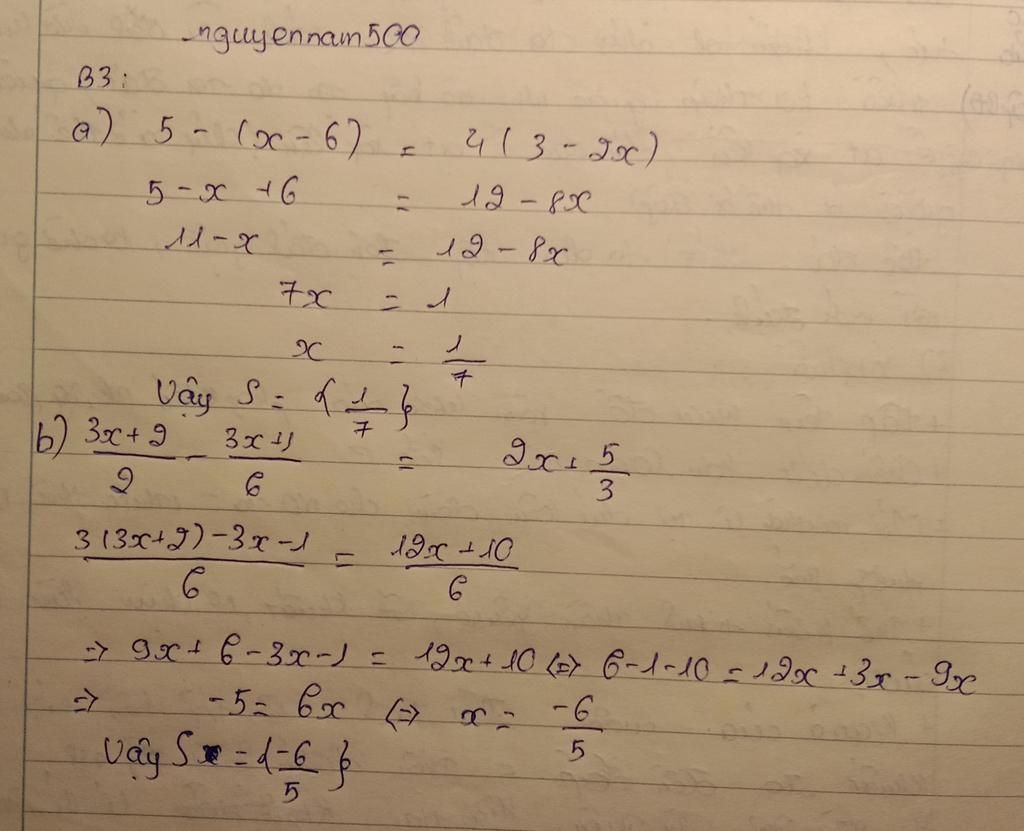 nguyennam500
B3:
a) 5 - (x - 6) = 4(3 - 2x)
5 - x + 6 = 12 - 8x
11 - x = 12 - 8x
7x = 1
x = 1/7
Vậy S = {1/7}
b) (3x+2)/2 - (3x+1)/6 = 2x + 5/3
(3(3x+2) - 3x - 1)/6 = (12x + 10)/6
=> 9x + 6 - 3x - 1 = 12x + 10 <=> 6 - 1 - 10 = 12x + 3x - 9x
=> -5 = 6x <=> x = -6/5
Vậy S = {-6/5}